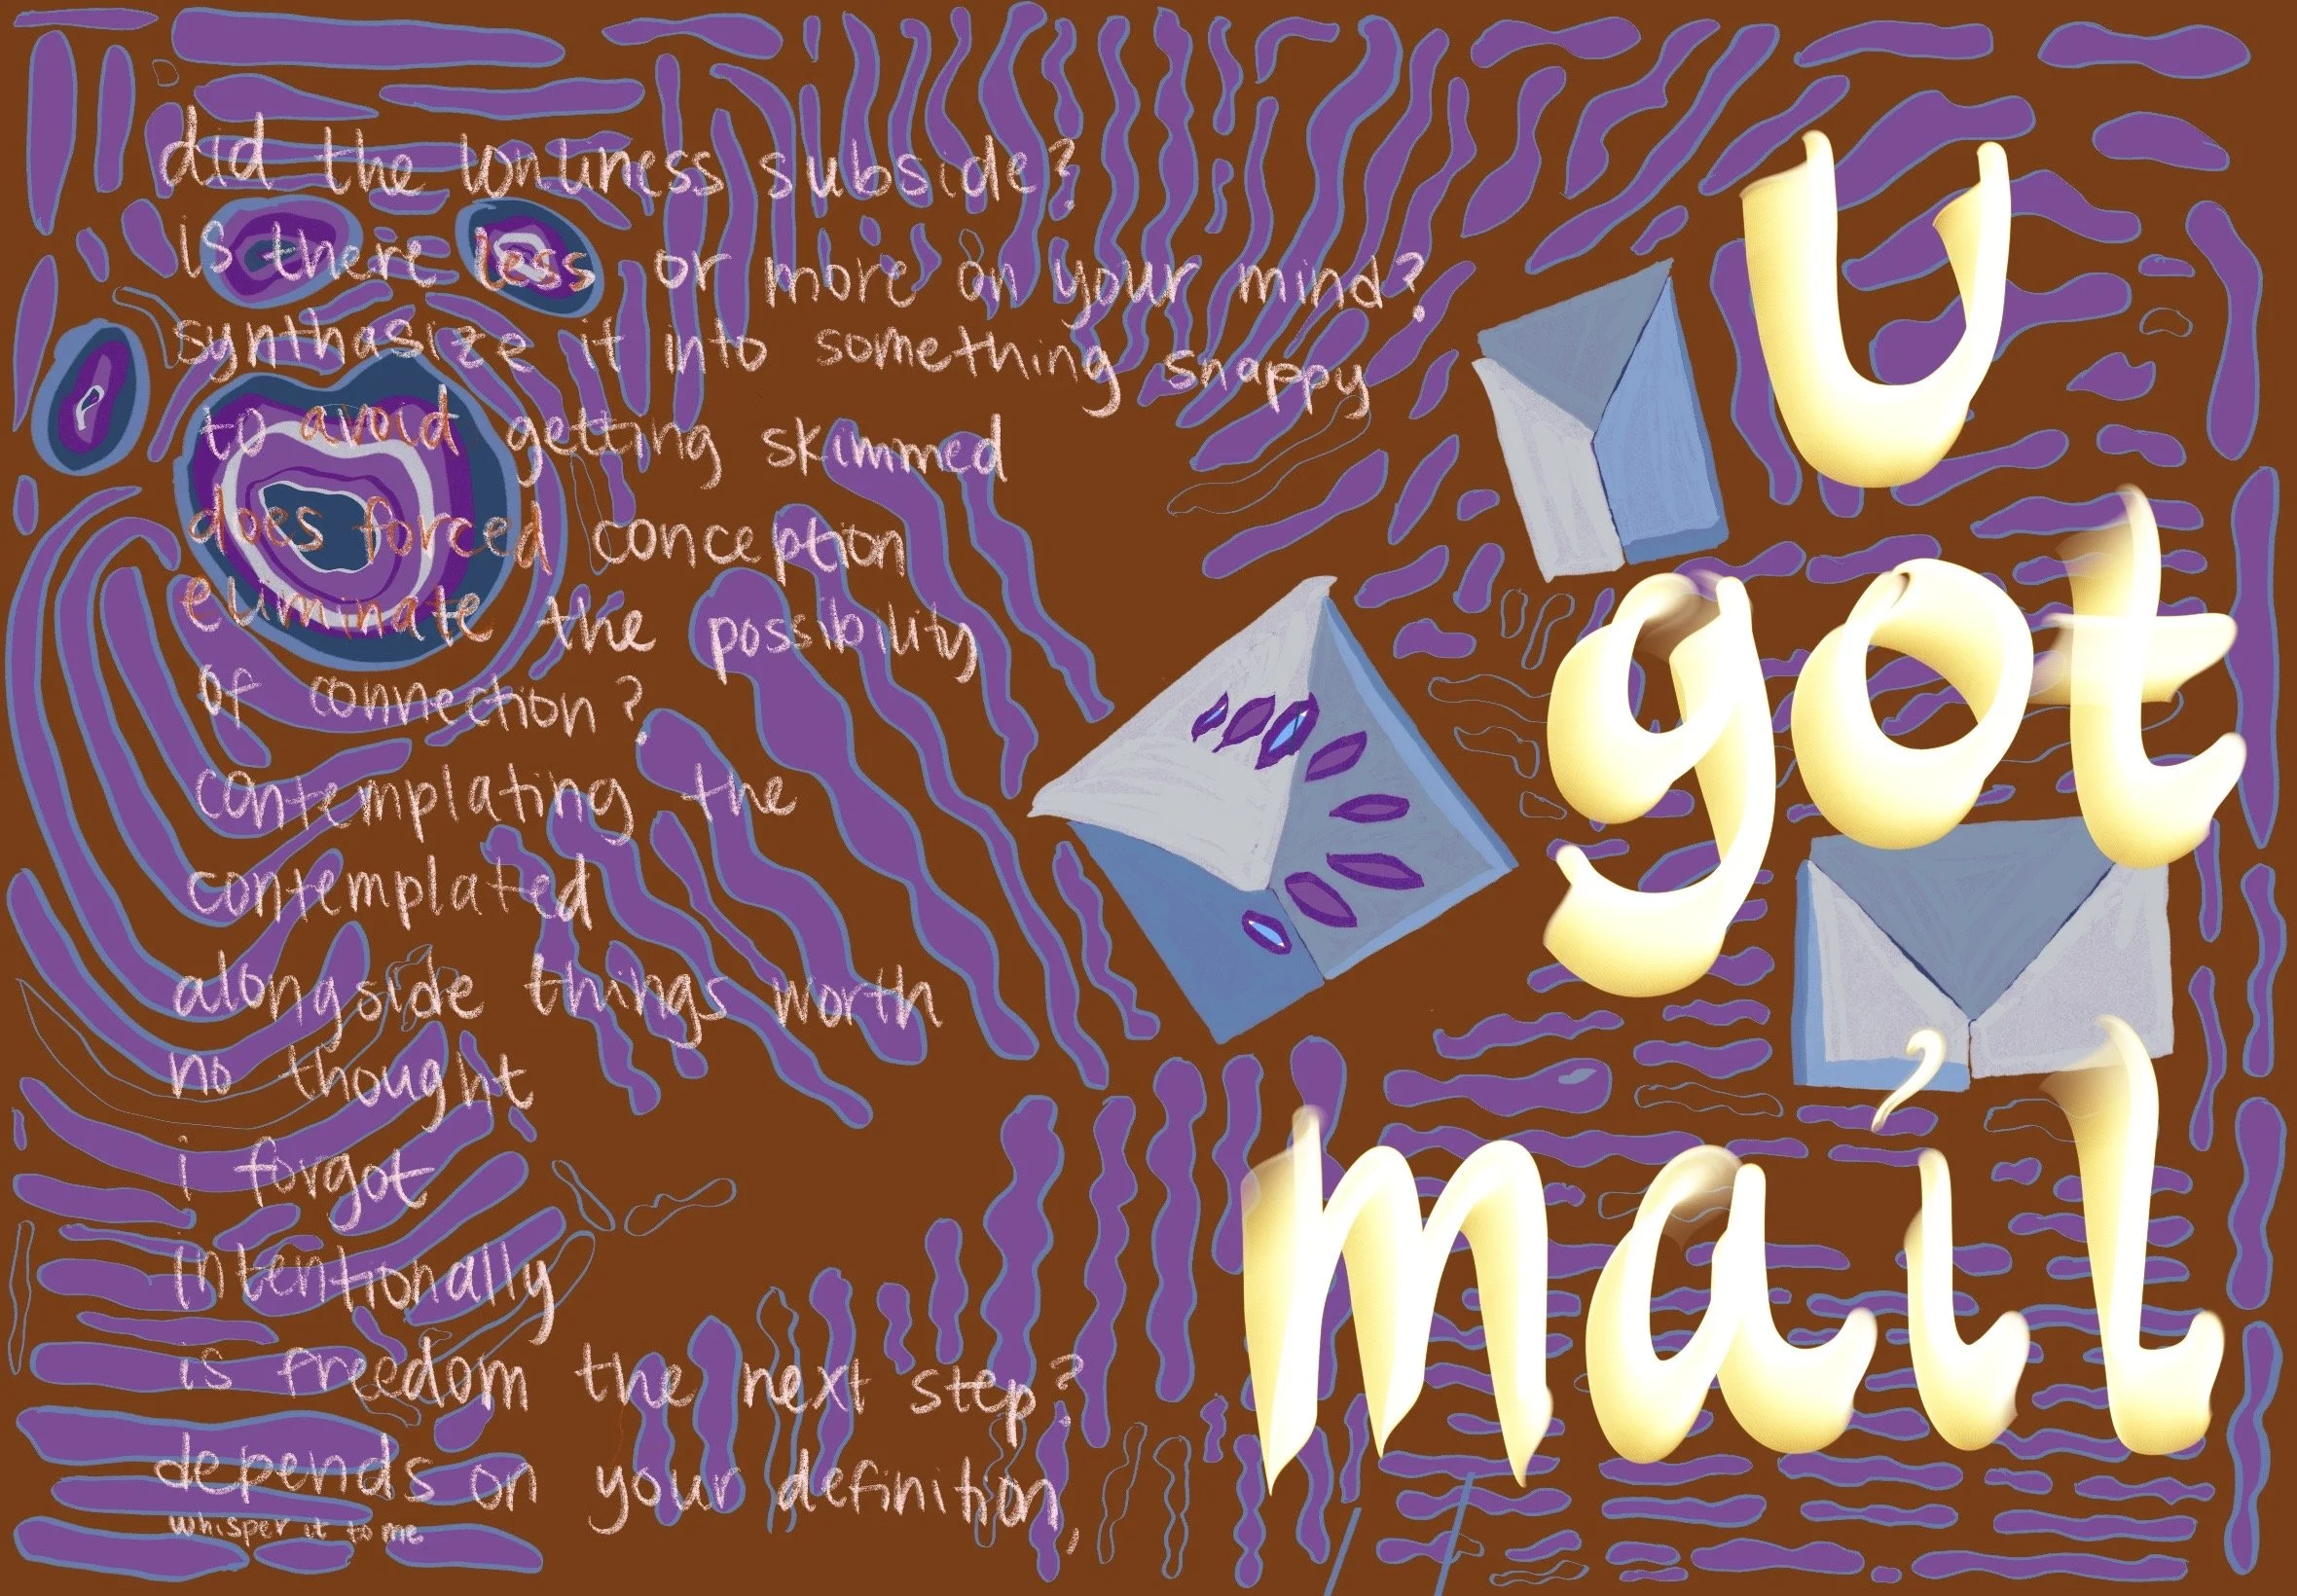 did the lonliness subside?
is there less or more on your mind?
synthasize it into something snappy
to avoid getting skimmed
does forced conception
eliminate the possibility
of connection?
contemplating the
contemplated
alongside things worth
no thought
i forgot
intentionally
is freedom the next step?
depends on your definition,
whisper it to me
U
got
mail